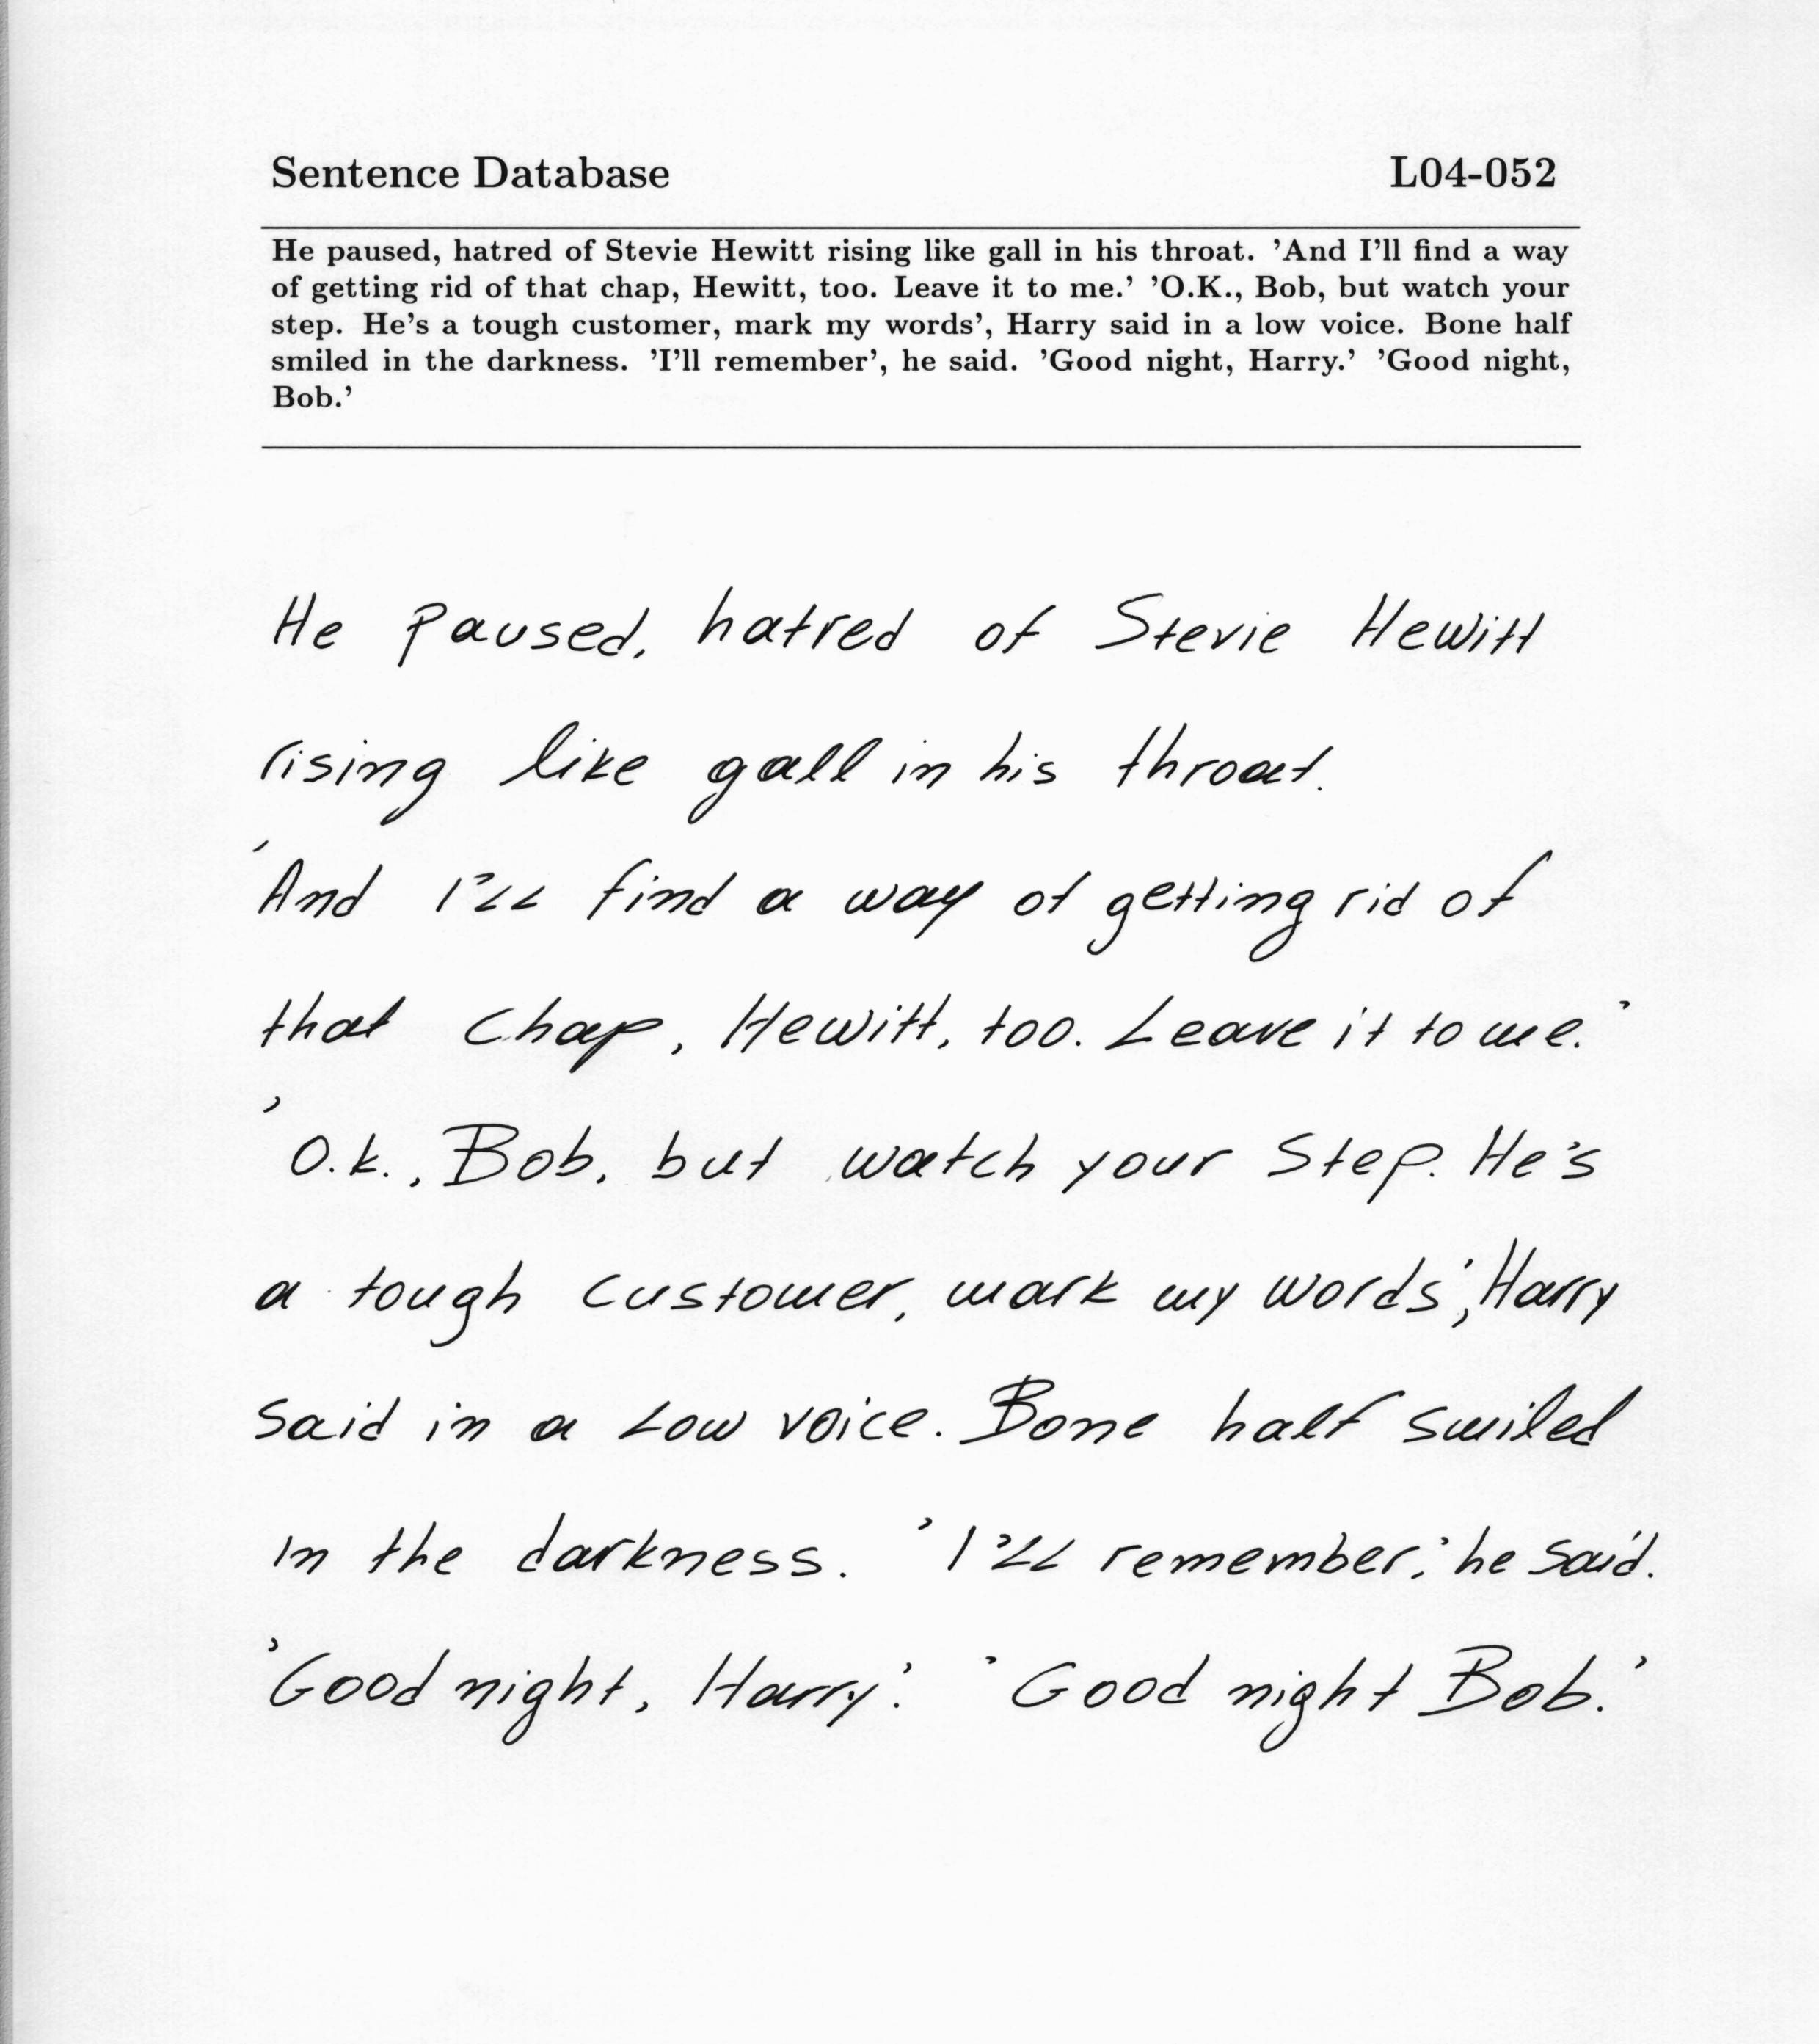 Sentence Database L04-052
He paused, hatred of Stevie Hewitt rising like gall in his throat. 'And I'll find a way
of getting rid of that chap, Hewitt, too. Leave it to me.' 'O.K., Bob, but watch your
step. He's a tough customer, mark my words', Harry said in a low voice. Bone half
smiled in the darkness. 'I'll remember', he said. 'Good night, Harry.' 'Good night,
Bob.'
He paused, hatred of Stevie Hewitt
rising like gall in his throat.
'And I'll find a way of getting rid of
that chap, Hewitt, too. Leave it to me.'
'O.k., Bob, but watch your step. He's
a tough customer, mark my words', Harry
said in a low voice. Bone half smiled
in the darkness. 'I'll remember,' he said.
'Good night, Harry.' 'Good night Bob.'